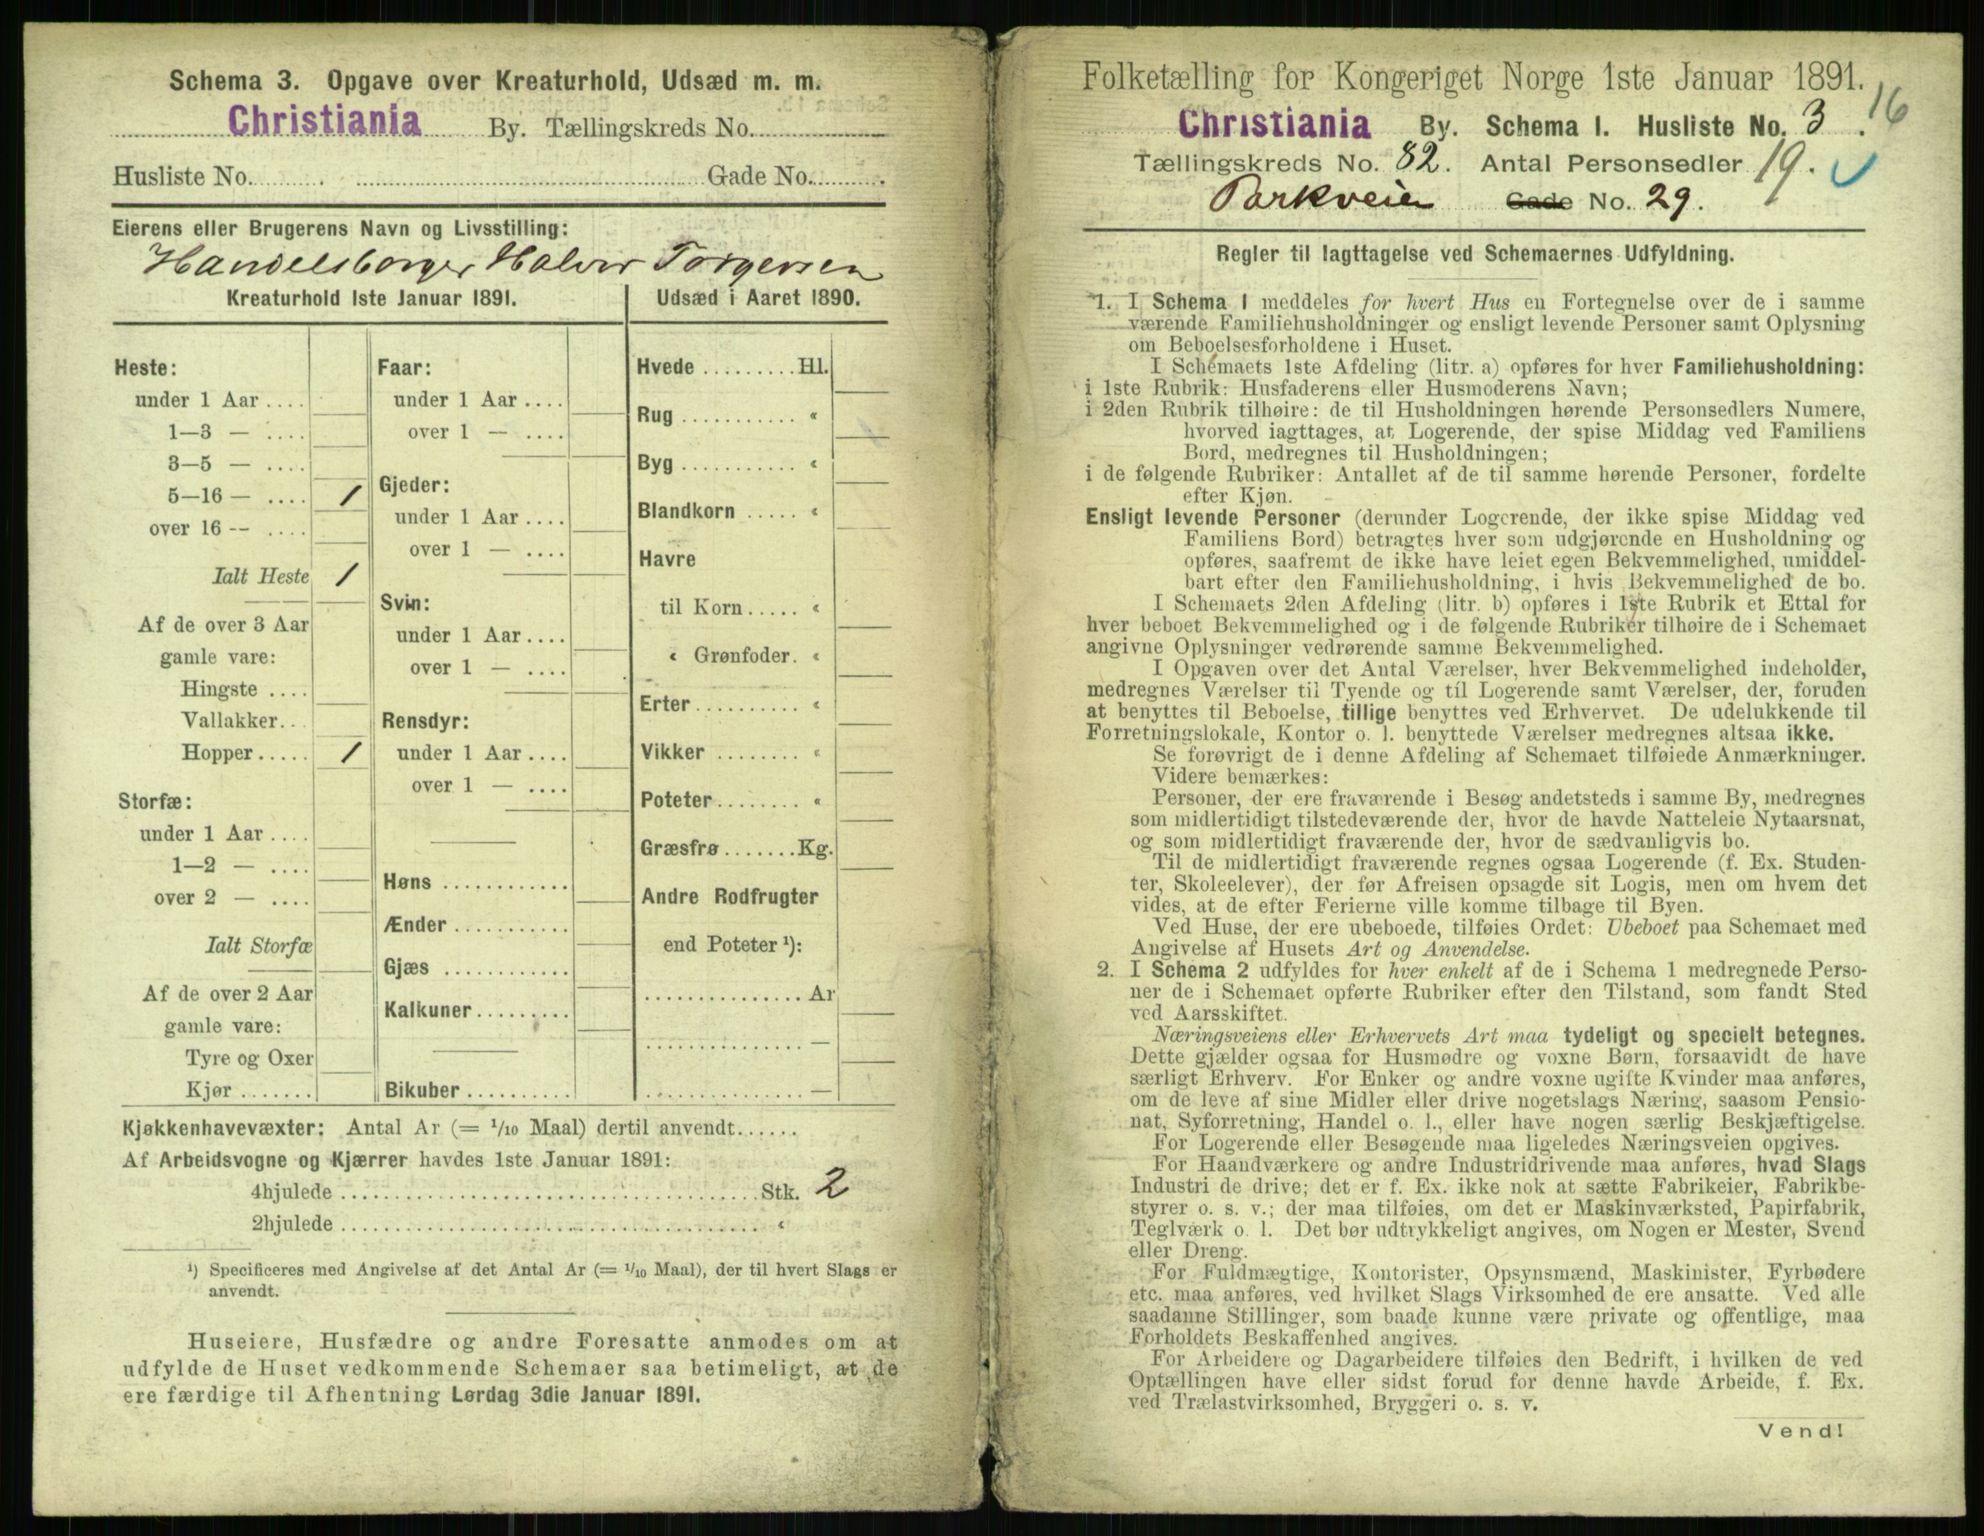 Schema 3. Opgave over Kreaturhold, Udsæd m. m.
Christiania By. Tællingskreds No.
Husliste No. Gade No.
Eierens eller Brugerens Navn og Livsstilling:
Handelsborger Halvor Torgersen
Kreaturhold 1ste Januar 1891.
Udsæd i Aaret 1890.
Heste:
under 1 Aar
1—3 —
3—5 —
5—16 — 1
over 16 —
Ialt Heste 1
Af de over 3 Aar
gamle vare:
Hingste
Vallakker
Hopper 1
Storfæ:
under 1 Aar
1—2 —
over 2 —
Ialt Storfæ
Af de over 2 Aar
gamle vare:
Tyre og Oxer
Kjør
Faar:
under 1 Aar
over 1 —
Gjeder:
under 1 Aar
over 1 —
Svin:
under 1 Aar
over 1 —
Rensdyr:
under 1 Aar
over 1 —
Høns
Ænder
Gjæs
Kalkuner
Bikuber
Hvede Hl.
Rug «
Byg «
Blandkorn «
Havre
til Korn «
« Grønfoder. «
Erter «
Vikker «
Poteter «
Græsfrø Kg.
Andre Rodfrugter
end Poteter ¹):
Ar
—
—
Kjøkkenhavevæxter: Antal Ar (= 1/10 Maal) dertil anvendt
Af Arbeidsvogne og Kjærrer havdes 1ste Januar 1891:
4hjulede Stk. 2
2hjulede «
¹) Specificeres med Angivelse af det Antal Ar (= 1/10 Maal), der til hvert Slags er
anvendt.
Huseiere, Husfædre og andre Foresatte anmodes om at
udfylde de Huset vedkommende Schemaer saa betimeligt, at de
ere færdige til Afhentning Lørdag 3die Januar 1891.
Folketælling for Kongeriget Norge 1ste Januar 1891.
16
Christiania By. Schema 1. Husliste No. 3.
Tællingskreds No. 82. Antal Personsedler 19.
Parkveien Gade No. 29.
Regler til Iagttagelse ved Schemaernes Udfyldning.
1. I Schema 1 meddeles for hvert Hus en Fortegnelse over de i samme
værende Familiehusholdninger og ensligt levende Personer samt Oplysning
om Beboelsesforholdene i Huset.
I Schemaets 1ste Afdeling (litr. a) opføres for hver Familiehusholdning:
i 1ste Rubrik: Husfaderens eller Husmoderens Navn;
i 2den Rubrik tilhøire: de til Husholdningen hørende Personsedlers Numere,
hvorved iagttages, at Logerende, der spise Middag ved Familiens
Bord, medregnes til Husholdningen;
i de følgende Rubriker: Antallet af de til samme hørende Personer, fordelte
efter Kjøn.
Ensligt levende Personer (derunder Logerende, der ikke spise Middag ved
Familiens Bord) betragtes hver som udgjørende en Husholdning og
opføres, saafremt de ikke have leiet egen Bekvemmelighed, umiddel-
bart efter den Familiehusholdning, i hvis Bekvemmelighed de bo.
I Schemaets 2den Afdeling (litr. b) opføres i 1ste Rubrik et Ettal for
hver beboet Bekvemmelighed og i de følgende Rubriker tilhøire de i Schemaet
angivne Oplysninger vedrørende samme Bekvemmelighed.
I Opgaven over det Antal Værelser, hver Bekvemmelighed indeholder,
medregnes Værelser til Tyende og til Logerende samt Værelser, der, foruden
at benyttes til Beboelse, tillige benyttes ved Erhvervet. De udelukkende til
Forretningslokale, Kontor o. l. benyttede Værelser medregnes altsaa ikke.
Se forøvrigt de i denne Afdeling af Schemaet tilføiede Anmærkninger.
Videre bemærkes:
Personer, der ere fraværende i Besøg andetsteds i samme By, medregnes
som midlertidigt tilstedeværende der, hvor de havde Natteleie Nytaarsnat,
og som midlertidigt fraværende der, hvor de sædvanligvis bo.
Til de midlertidigt fraværende regnes ogsaa Logerende (f. Ex. Studen-
ter, Skoleelever), der før Afreisen opsagde sit Logis, men om hvem det
vides, at de efter Ferierne ville komme tilbage til Byen.
Ved Huse, der ere ubeboede, tilføies Ordet: Ubeboet paa Schemaet med
Angivelse af Husets Art og Anvendelse.
2. I Schema 2 udfyldes for hver enkelt af de i Schema 1 medregnede Perso-
ner de i Schemaet opførte Rubriker efter den Tilstand, som fandt Sted
ved Aarsskiftet.
Næringsveiens eller Erhvervets Art maa tydeligt og specielt betegnes.
Dette gjælder ogsaa for Husmødre og voxne Børn, forsaavidt de have
særligt Erhverv. For Enker og andre voxne ugifte Kvinder maa anføres,
om de leve af sine Midler eller drive nogetslags Næring, saasom Pensio-
nat, Syforretning, Handel o. l., eller have nogen særlig Beskjæftigelse.
For Logerende eller Besøgende maa ligeledes Næringsveien opgives.
For Haandværkere og andre Industridrivende maa anføres, hvad Slags
Industri de drive; det er f. Ex. ikke nok at sætte Fabrikeier, Fabrikbe-
styrer o. s. v.; der maa tilføies, om det er Maskinværksted, Papirfabrik,
Teglværk o. l. Det bør udtrykkeligt angives, om Nogen er Mester, Svend
eller Dreng.
For Fuldmægtige, Kontorister, Opsynsmænd, Maskinister, Fyrbødere
etc. maa anføres, ved hvilket Slags Virksomhed de ere ansatte. Ved alle
saadanne Stillinger, som baade kunne være private og offentlige, maa
Forholdets Beskaffenhed angives.
For Arbeidere og Dagarbeidere tilføies den Bedrift, i hvilken de ved
Optællingen have eller sidst forud for denne havde Arbeide, f. Ex.
ved Trælastvirksomhed, Bryggeri o. s. v.
Vend!